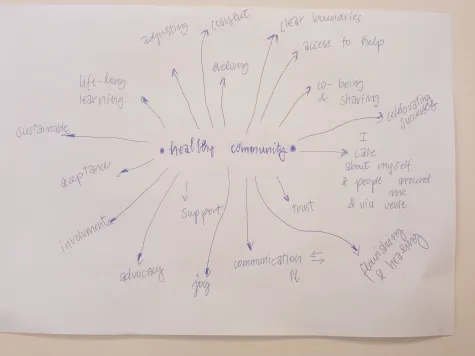 adjusting
constant
clear boundaries
access to help
life-long
learning
evolving
co-being
& sharing
celebrating
successes
sustainable
healthy community
I
care
about myself
& people around
me
& vice verse
acceptance
support
trust
involvement
advocacy
joy
communication
flourishing
& healing